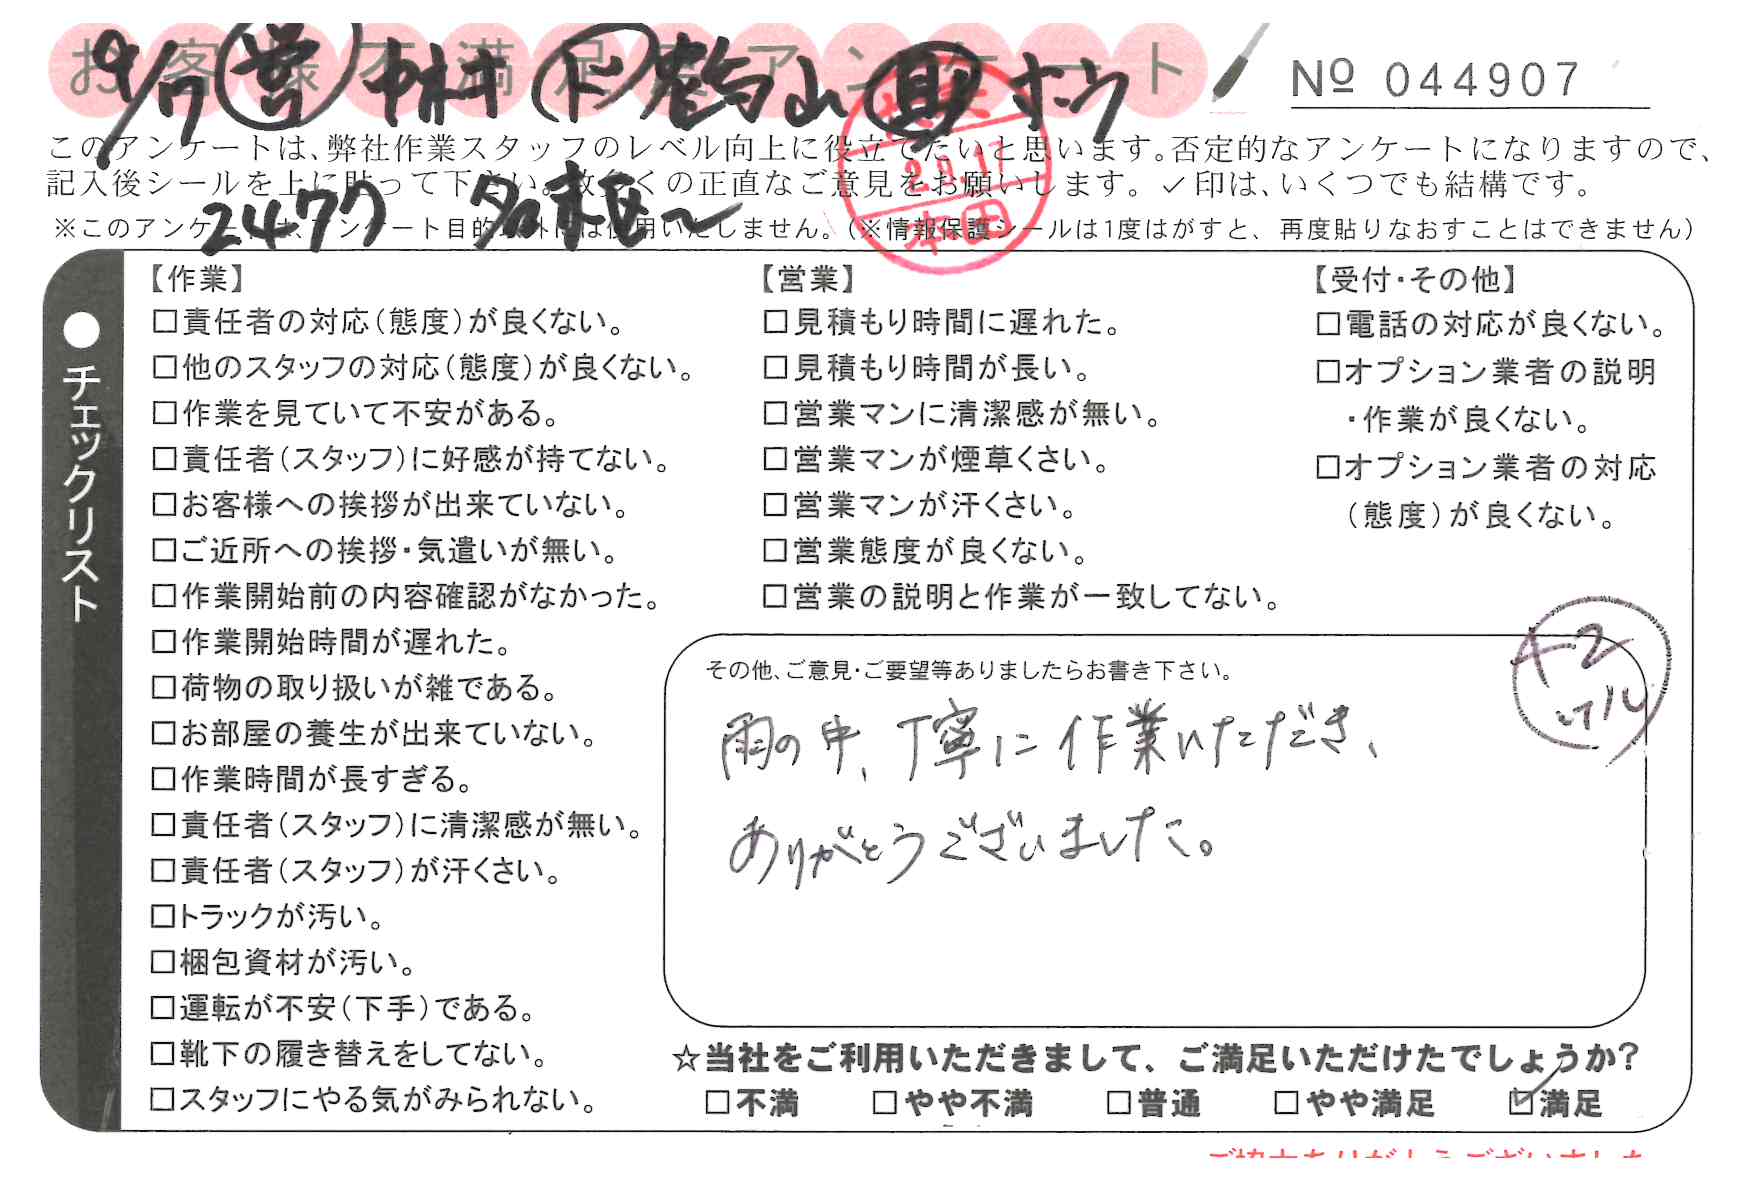 お客様不満足度アンケート
№ 044907
9/7 営 中村 ド 亀山
このアンケートは、弊社作業スタッフのレベル向上に役立てたいと思います。否定的なアンケートになりますので、
記入後シールを上に貼って下さい。数多くの正直なご意見をお願いします。✓印は、いくつでも結構です。
2477
※このアンケートは、アンケート目的以外には使用いたしません。(※情報保護シールは1度はがすと、再度貼りなおすことはできません)
本田
●チェックリスト
【作業】
□責任者の対応(態度)が良くない。
□他のスタッフの対応(態度)が良くない。
□作業を見ていて不安がある。
□責任者(スタッフ)に好感が持てない。
□お客様への挨拶が出来ていない。
□ご近所への挨拶・気遣いが無い。
□作業開始前の内容確認がなかった。
□作業開始時間が遅れた。
□荷物の取り扱いが雑である。
□お部屋の養生が出来ていない。
□作業時間が長すぎる。
□責任者(スタッフ)に清潔感が無い。
□責任者(スタッフ)が汗くさい。
□トラックが汚い。
□梱包資材が汚い。
□運転が不安(下手)である。
□靴下の履き替えをしてない。
□スタッフにやる気がみられない。
【営業】
□見積もり時間に遅れた。
□見積もり時間が長い。
□営業マンに清潔感が無い。
□営業マンが煙草くさい。
□営業マンが汗くさい。
□営業態度が良くない。
□営業の説明と作業が一致してない。
【受付・その他】
□電話の対応が良くない。
□オプション業者の説明
・作業が良くない。
□オプション業者の対応
(態度)が良くない。
その他、ご意見・ご要望等ありましたらお書き下さい。
雨の中、丁寧に作業いただき、
ありがとうございました。
☆当社をご利用いただきまして、ご満足いただけたでしょうか?
□不満 □やや不満 □普通 □やや満足 ☑満足
ご協力ありがとうございました